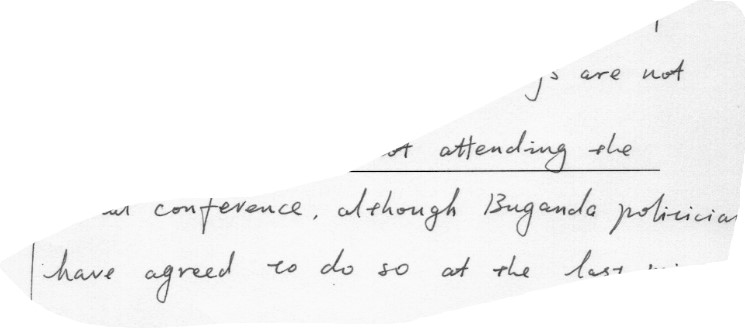 are not
attending the
conference, although Buganda
have agreed to do so at the last